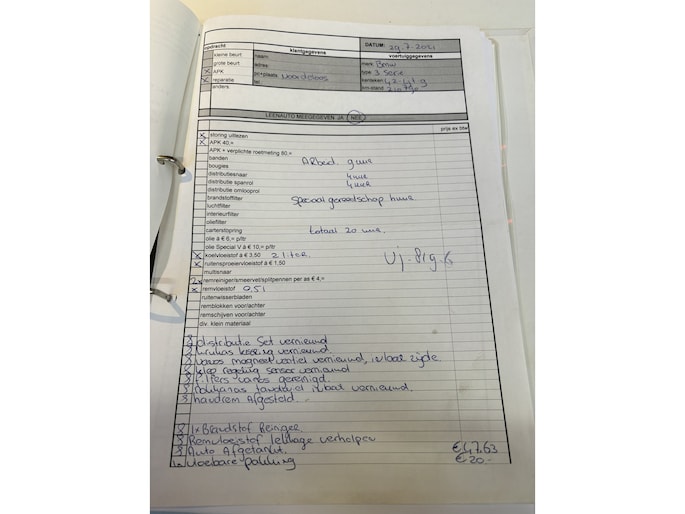 opdracht
klantgegevens
DATUM: 29.7.2021
kleine beurt
naam:
voertuiggegevens
grote beurt
adres:
merk Bmw
x APK
pc+plaats:
type 3 Serie
x reparatie
tel:
kenteken
anders:
km-stand
LEENAUTO MEEGEGEVEN JA / NEE
prijs ex btw
x storing uitlezen
x APK 40,=
APK + verplichte roetmeting 50,=
banden Arbeid. 9 uur
bougies
distributiesnaar 4 uur
distributie spanrol 4 uur
distributie omlooprol
brandstoffilter Speciaal gereedschap huur
luchtfilter
interieurfilter
oliefilter
carterstopring totaal 20 uur.
olie á € 6,= p/ltr
olie Special V á € 10,= p/ltr
x koelvloeistof á € 3,50 2 liter
x ruitensproeiervloeistof á € 1,50
multisnaar
2x remreiniger/smeervet/splitpennen per as € 4,=
x remvloeistof 0,5l
ruitenwisserbladen
remblokken voor/achter
remschijven voor/achter
div. klein materiaal
distributie Set vernieuwd
vernieuwd.
vanos magneet ventiel vernieuwd, inlaat zijde
klep regeling sensor vernieuwd
filters vanos gereinigd.
vernieuwd.
handrem Afgesteld.
1x Brandstof Reiniger
Remvloeistof lekkage verholpen
Auto Afgetankt. €47,63
vloeibare pakking €20,-